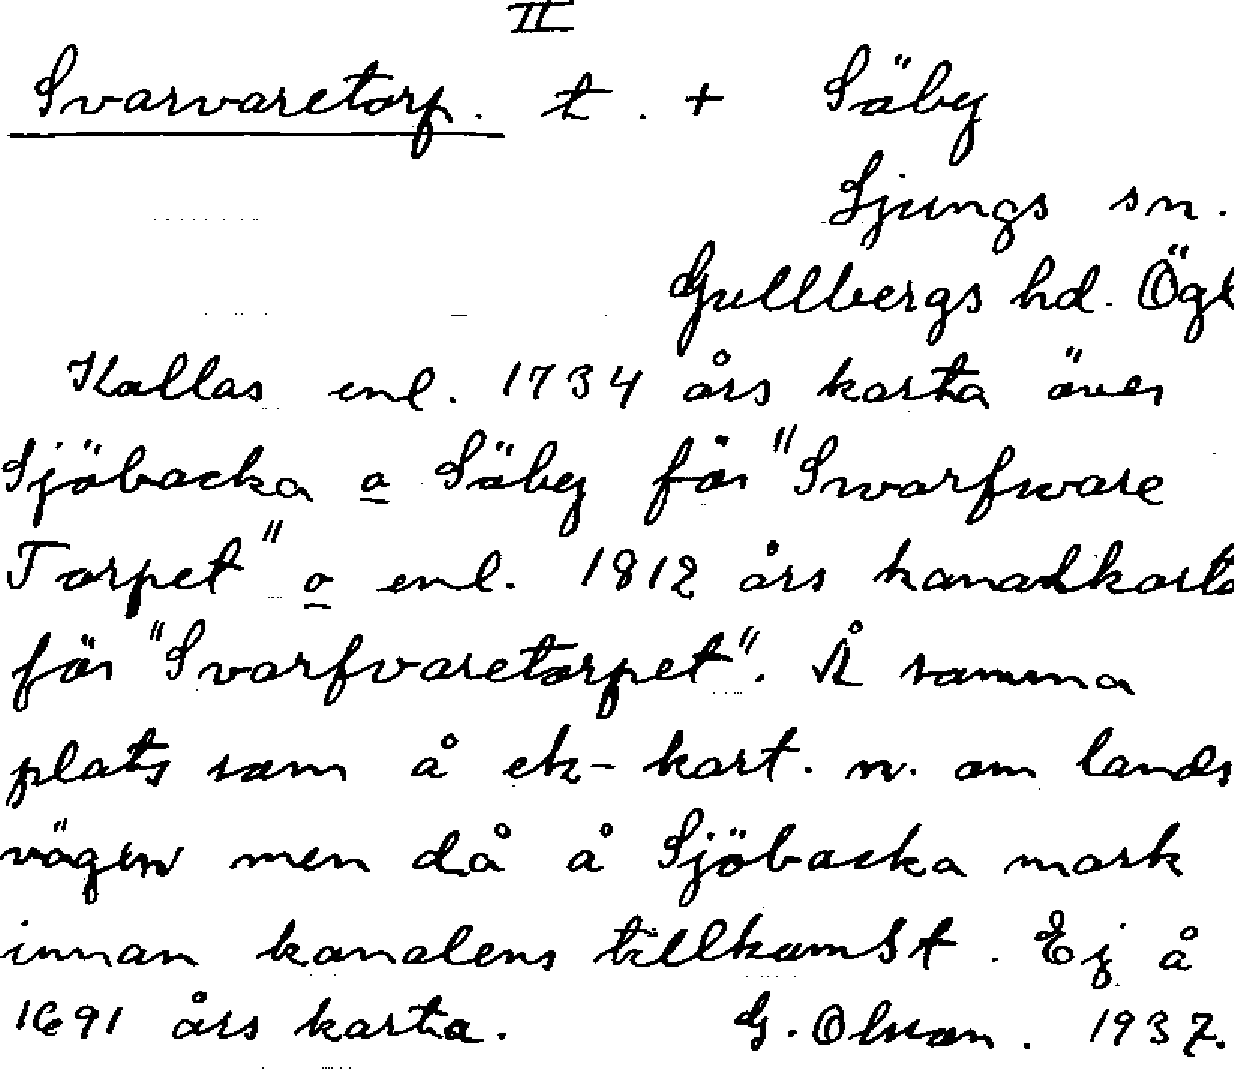 II
Svarvaretorp. t. + Säby
Ljungs sn.
Gullbergs hd. Ögl
Kallas enl. 1734 års karta över
Sjöbacka o Säby för "Swarfware
Torpet" o enl. 1812 års kanalkarta
för "Svarfvaretorpet". Å samma
plats som å ek-kart. n. om lands
vägen men då å Sjöbacka mark
innan kanalens tillkomst. Ej å
1691 års karta. G. Olson. 1937.